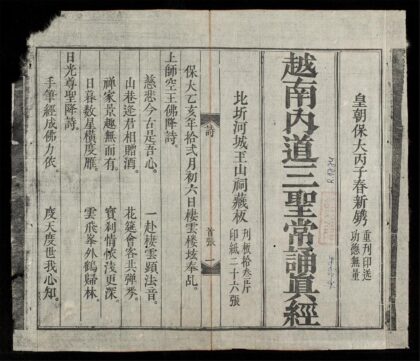 皇朝保大丙子春新鐫
重刊印送
功德無量
越南内道三聖常誦真經
北圻河城玉山祠藏板
刊板拾叁片
印紙二十六張
詩
首張 一
保大乙亥年拾貳月初六日棲雲樓垓奉乩。
上師空王佛降詩。
慈悲今古是吾心。 一赴棲雲顕法音。
山巷逢君相贈酒。 花筵會客共弹琴。
禅家景趣無而有。 寳刹情懐浅更深。
日暮数星橫度雁。 雲飛峯外鶴歸林。
日光尊聖降詩。
手筆經成佛力依 度天度世我心知。